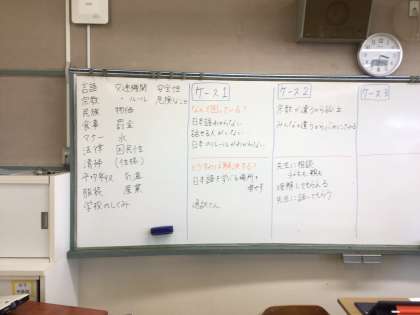 言語 交通機関 安全性
宗教 ・ルール 危険なこと
民族 物価
食事 罰金
マナー 水
法律 国民性
清掃 (性格)
平均年収 気温
服装 産業
学校のしくみ
ケース1
なんで困っている?
日本語わからない
話せる人がいない
日本のルールがわからない
どうすれば解決する?
日本語を学べる場所を
増やす
通訳さん
ケース2
宗教が違うから
みんなと違うから
先生に相談
子ども、親も
理解してもらえる
先生に話してもらう
ケース3